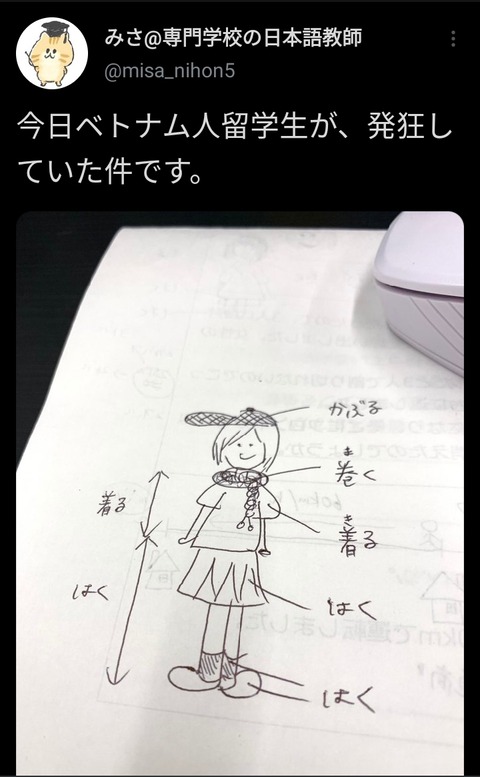 みさ@専門学校の日本語教師
@misa_nihon5
今日ベトナム人留学生が、発狂し
ていた件です。
かぶる
ま
巻く
着る
き
着る
はく
はく
はく
60km/